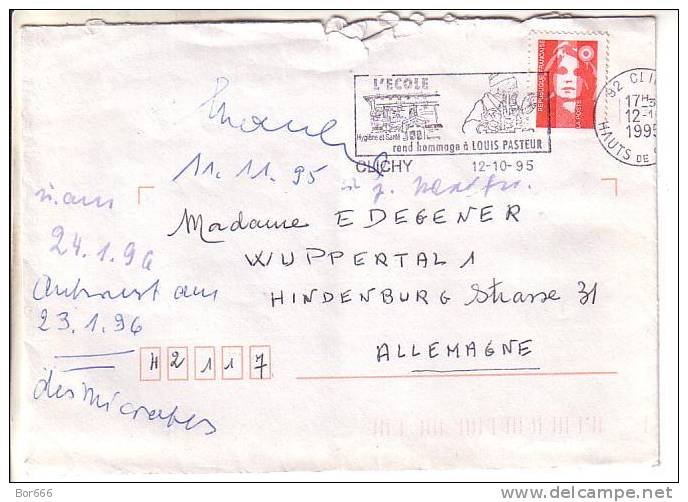 L'ECOLE
Hygiène et Santé
rend hommage à LOUIS PASTEUR
CLICHY 12-10-95
REPUBLIQUE FRANÇAISE
LA POSTE
92 CLI
17H
12-1
1995
HAUTS DE
11. 11. 95
Madame EDEGENER
WUPPERTAL 1
HINDENBURG Strasse 31
ALLEMAGNE
24.1.96
Antwort am
23.1.96
H 2 1 1 7
des microbes
Bor666
delcampe.net